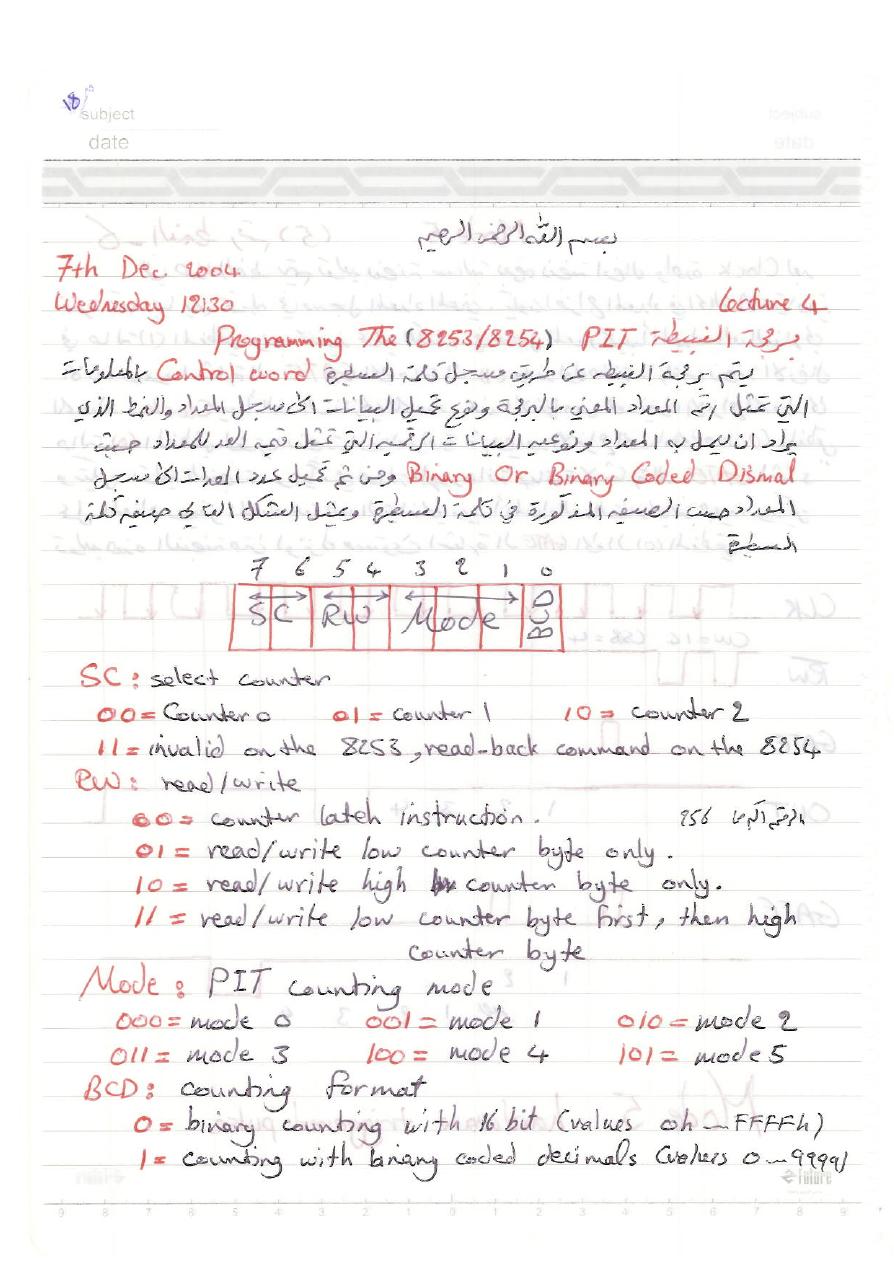 18
subject
date
بسم الله الرحمن الرحيم
7th Dec 2004
Wednesday 12:30
Lecture 4
برمجة الضبيطة Programming The (8253/8254) PIT
يتم برمجة الضبيطه عن طريق مسجل كلمة السيطرة Control word بالمعلومات
التي تمثل رقم المعداد المعني بالبرمجة ونوع تحميل البيانات الى مسجل المعداد والنمط الذي
يراد ان يعمل به المعداد ونوعيه البيانات الرقميه التي تمثل قيمه العد للمعداد حسب
Binary Or Binary Coded Dismal ومن ثم تحميل عدد العدات الى مسجل
المعداد حسب الصيغه المذكورة في كلمة السيطرة ويمثل الشكل التالي صيغه كلمة
السيطرة
7 6 5 4 3 2 1 0
SC RW Mode BCD
SC: select counter
00= Counter 0 01= counter 1 10= counter 2
11= invalid on the 8253, read-back command on the 8254
RW: read/write
00= counter latch instruction. 256
01= read/write low counter byte only.
10= read/write high counter byte only.
11= read/write low counter byte first, then high
counter byte
Mode: PIT counting mode
000= mode 0 001= mode 1 010= mode 2
011= mode 3 100= mode 4 101= mode 5
BCD: counting format
0= binary counting with 16 bit (values 0h — FFFFh)
1= counting with binary coded decimals (values 0 — 9999)
future
9 8 7 6 5 4 3 2 1 0 1 2 3 4 5 6 7 8 9